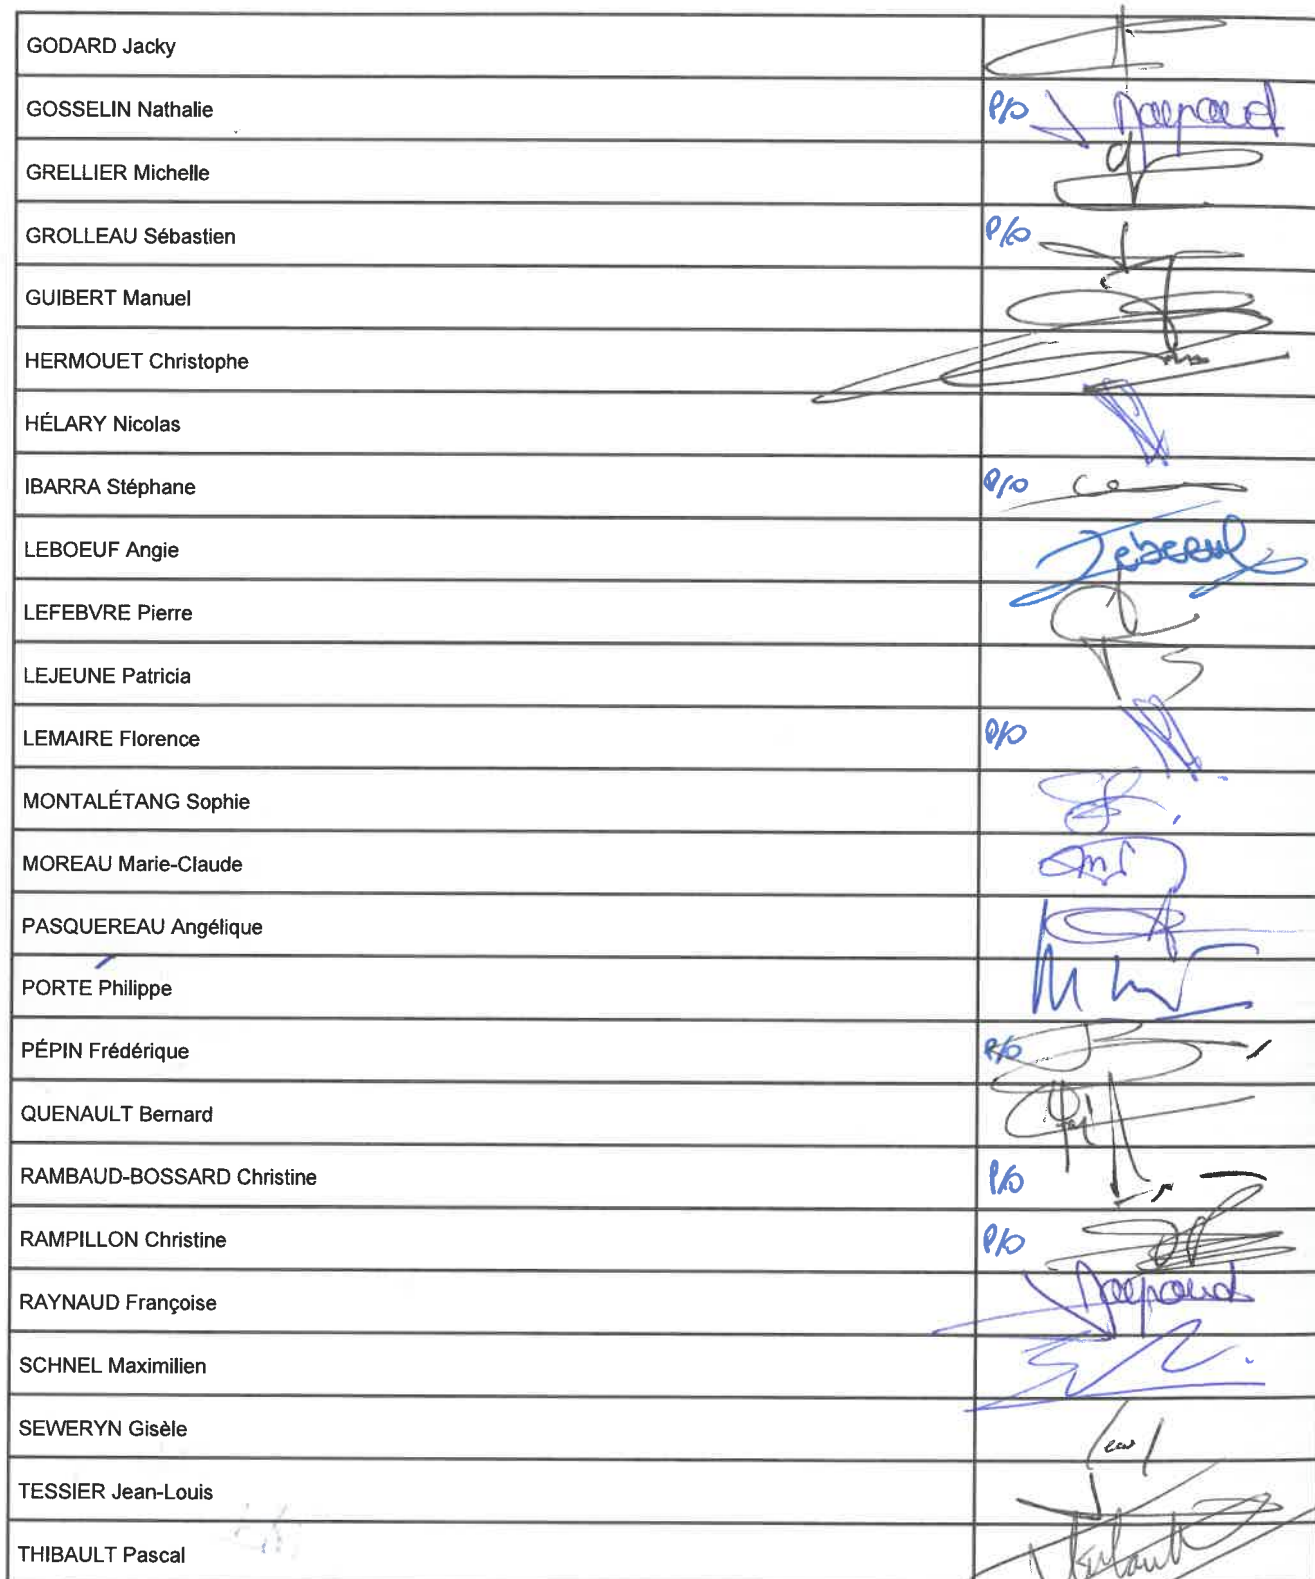 GODARD Jacky
GOSSELIN Nathalie P/o Raynaud
GRELLIER Michelle
GROLLEAU Sébastien P/o
GUIBERT Manuel
HERMOUET Christophe
HÉLARY Nicolas
IBARRA Stéphane P/o
LEBOEUF Angie Leboeuf
LEFEBVRE Pierre
LEJEUNE Patricia
LEMAIRE Florence P/o
MONTALÉTANG Sophie
MOREAU Marie-Claude
PASQUEREAU Angélique
PORTÉ Philippe
PÉPIN Frédérique P/o
QUENAULT Bernard
RAMBAUD-BOSSARD Christine P/o
RAMPILLON Christine P/o
RAYNAUD Françoise Raynaud
SCHNEL Maximilien
SEWERYN Gisèle
TESSIER Jean-Louis
THIBAULT Pascal Thibault